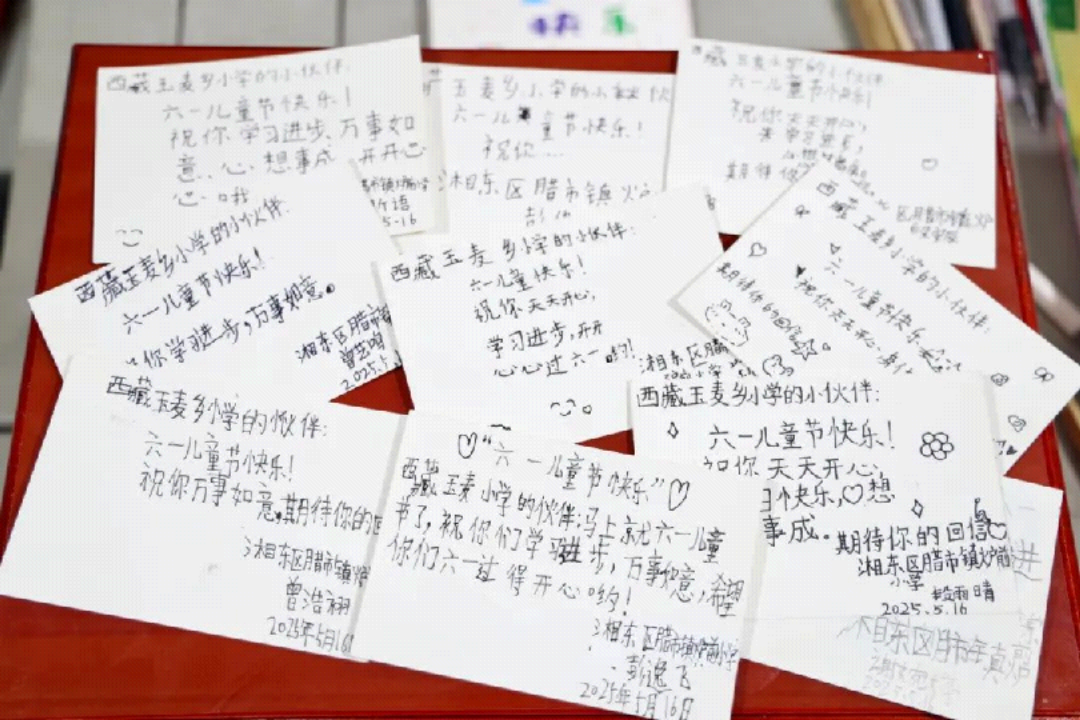 西藏玉麦乡小学的小伙伴:
六一儿童节快乐!
祝你学习进步、万事如
意、心想事成 开开心
心哦
5-16
玉麦乡小学的小伙伙
六一儿童节快乐!
祝你...
湘东区腊市镇
西藏玉麦乡小学的小伙伴
六一儿童节快乐!
祝你天天开心,
期待你
区腊市镇
西藏玉麦乡小学的小伙伴:
六一儿童节快乐!
你学习进步,万事如意。
湘东区腊市
2025.5.1
西藏玉麦乡小学的小伙伴:
六一儿童节快乐!
祝你天天开心,
学习进步,开开
心心过六一哟!
湘东区腊
西藏玉麦乡小学的小伙伴:
六一儿童节快乐
祝你天天开心,
期待你的回信
西藏玉麦乡小学的小伙伴:
六一儿童节快乐!
祝你万事如意,期待你的回
湘东区腊市镇炉
曾浩翔
2025年5月16
“六一儿童节快乐”
西藏玉麦小学的伙伴:马上就六一儿童
节了,祝你们学习进步,万事如意,希望
你们六一过得开心哟!
湘东区腊市镇炉前小学
彭逸飞
2025年5月16日
西藏玉麦乡小学的小伙伴:
六一儿童节快乐!
如你天天开心,
日快乐,想
事成。期待你的回信
湘东区腊市镇炉前
小学
雨晴
2025.5.16
进
东区腊市